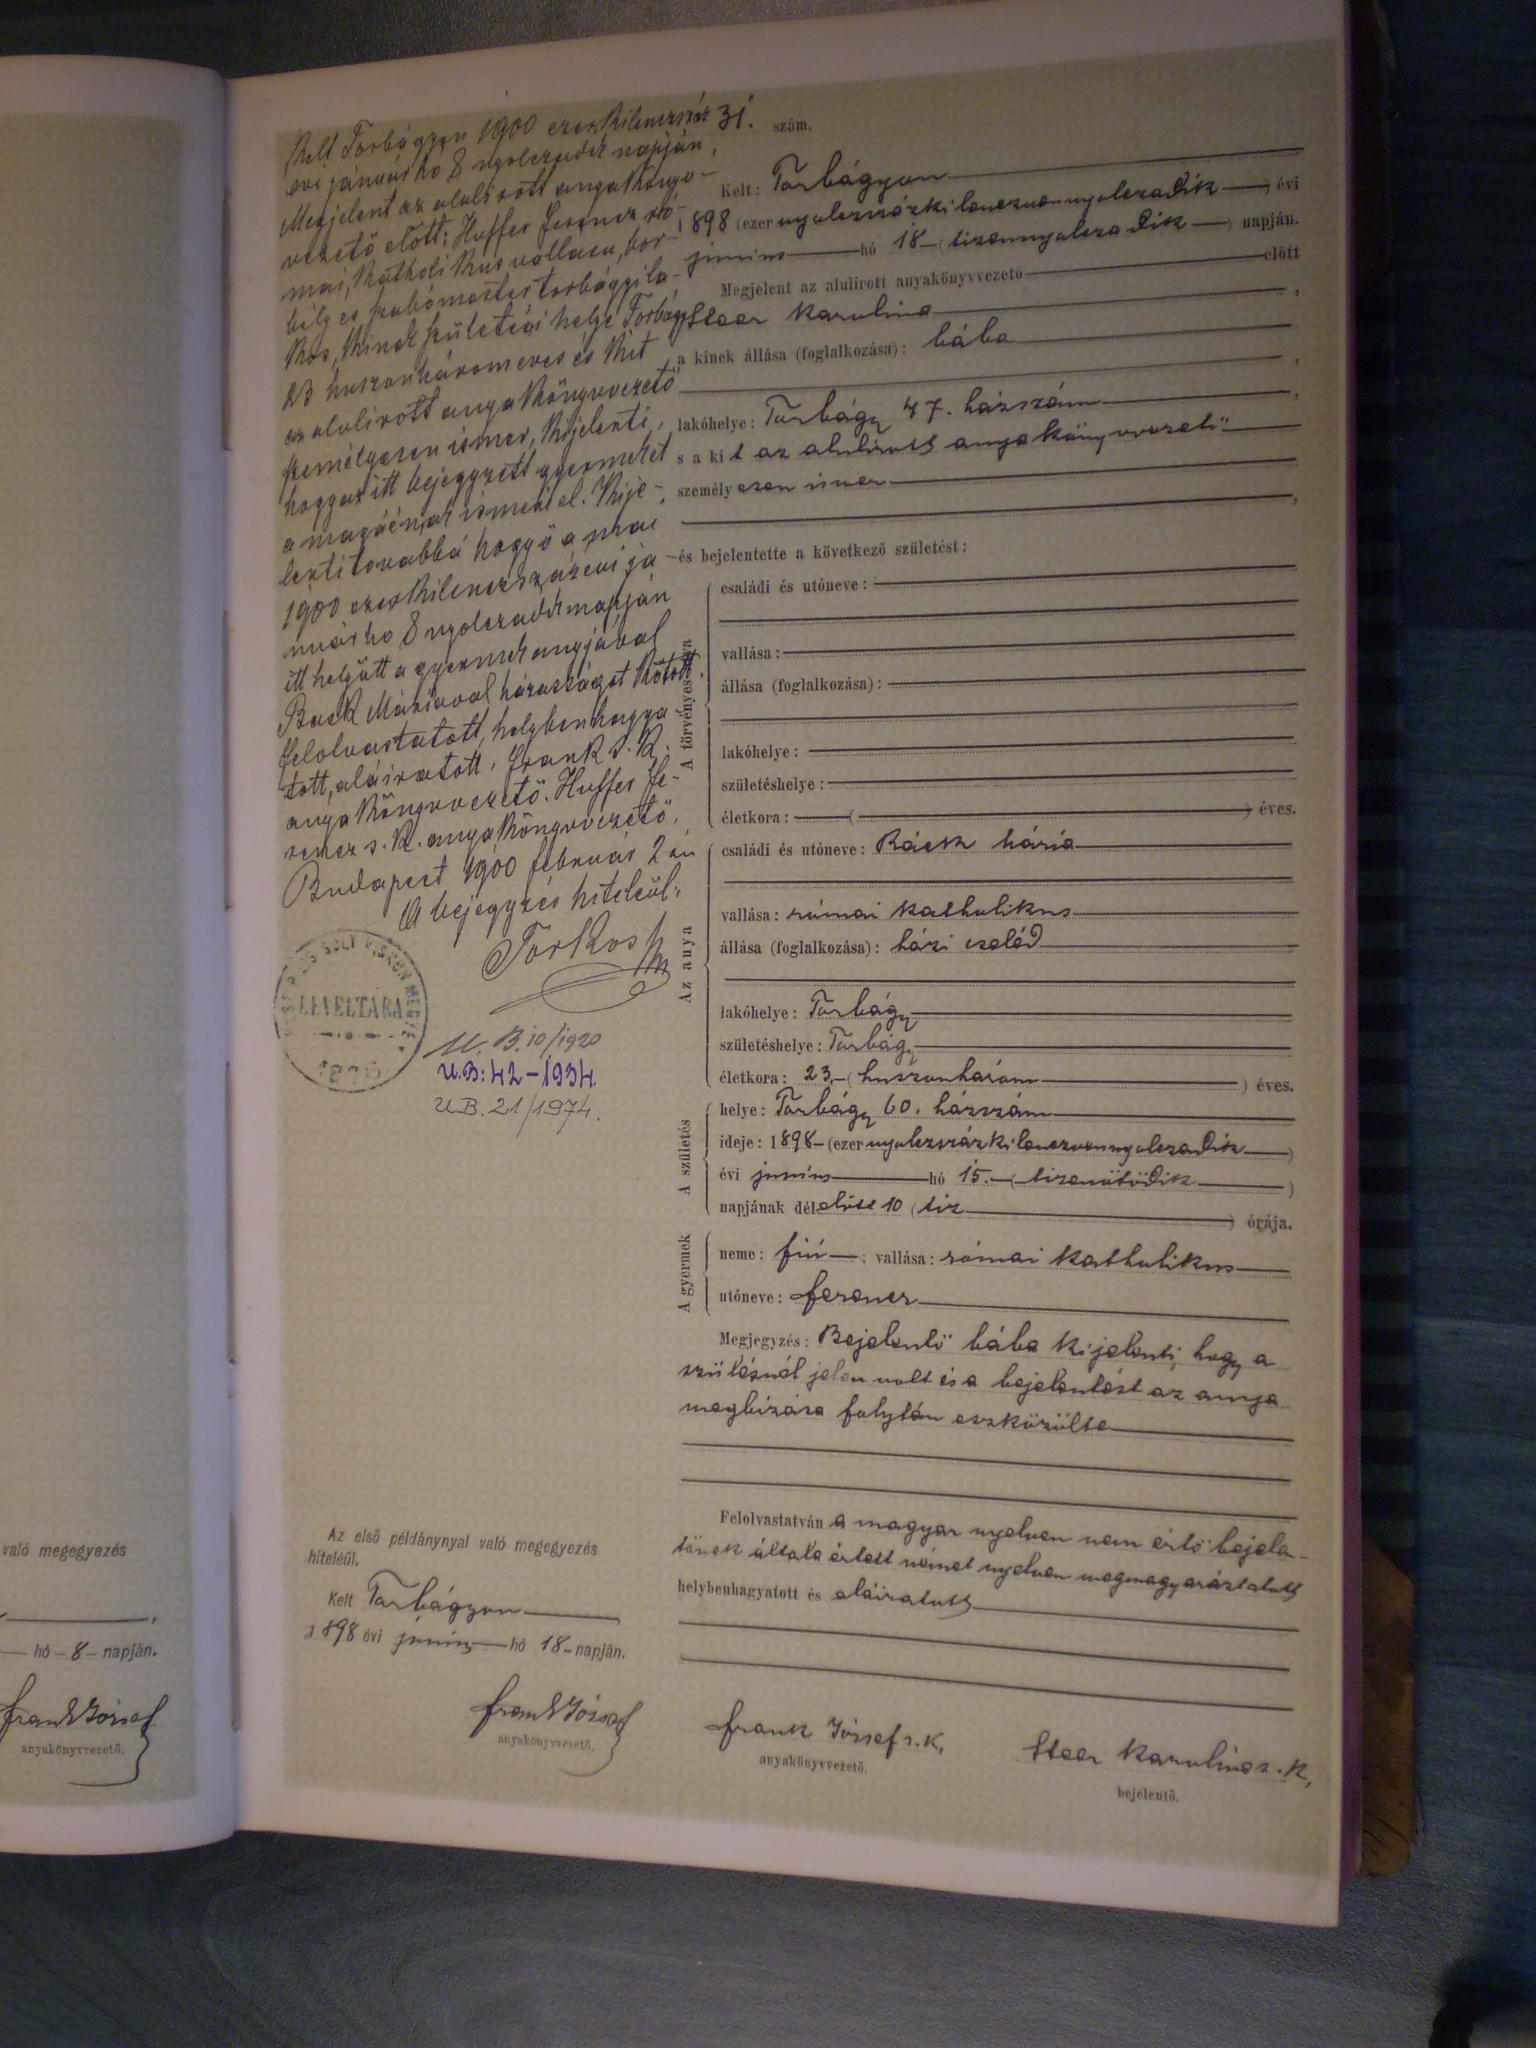 Kelt Torbágyon 1900 ezerkilenczszáz
évi január hó 8 nyolczadik napján.
Megjelent az alulirott anyakönyv-
vezető előtt: Huffer Ferencz ró-
mai katholikus vallásu, bor-
bély és szabómester torbágyi la-
kos, kinek születési helye Torbágy
23 huszonhárom éves és kit
az alulirott anyakönyvvezető
személyesen ismer, kijelenti,
hogy az itt bejegyzett gyermeket
a magáénak ismeri el. Kije-
lenti továbbá hogy ő a mai
1900 ezerkilenczszáz évi ja-
nuár hó 8 nyolczadik napján
itt helyütt a gyermek anyjával
Back Máriával házasságot kötött.
Felolvastatott, helybenhagya-
tott, aláiratott. Frank s. k.
anyakönyvvezető. Huffer Fe-
rencz s. k. anyakönyvvezető.
Budapest 1900 február 2 án
A bejegyzés hiteléül:
Torkos
LEVÉLTÁRA
1876
U. B. 10/1920
U.B: 42-1934.
U.B. 21/1974.
31. szám.
Kelt: Torbágyon
1898 (ezer nyolczszázkilenczvennyolczadik) évi
junius hó 18 (tizennyolczadik) napján.
Megjelent az alulirott anyakönyvvezető előtt
Steer Karolina,
a kinek állása (foglalkozása): bába,
lakóhelye: Torbágy 47. házszám,
s a kit az alulirott anyakönyvvezető
személyesen ismer,
és bejelentette a következő születést:
A törvényes
családi és utóneve:
vallása:
állása (foglalkozása):
lakóhelye:
születéshelye:
életkora: ( ) éves.
Az anya
családi és utóneve: Báck Mária
vallása: római katholikus
állása (foglalkozása): házi cseléd
lakóhelye: Torbágy
születéshelye: Torbágy
életkora: 23 (huszonhárom) éves.
A születés
helye: Torbágy 60. házszám
ideje: 1898 (ezer nyolczszázkilenczvennyolczadik)
évi junius hó 15. (tizenötödik)
napjának délelőtt 10 (tiz) órája.
A gyermek
neme: fiú; vallása: római katholikus
utóneve: Ferencz
Megjegyzés: Bejelentő bába kijelenti, hogy a
szülésnél jelen volt és a bejelentést az anya
megbizása folytán eszközölte
Felolvastatván a magyar nyelven nem értő bejelen-
tőnek általa értett német nyelven megmagyaráztatott
helybenhagyatott és aláiratott
Az első példánynyal való megegyezés
hiteléül.
Kelt Torbágyon
1898 évi junius hó 18 napján.
Frank József
anyakönyvvezető.
Frank József s. k.
anyakönyvvezető.
Steer Karolina s. k.
bejelentő.
való megegyezés
hó 8 napján.
Frank József
anyakönyvvezető.